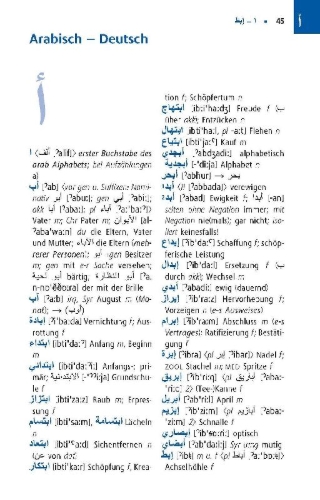 ا – إبط ▪ 45
أ
Arabisch – Deutsch
أ
ا (ألف) [ʔalif] erster Buchstabe des
arab Alphabets; bei Aufzählungen
a)
أب [ʔab] (vor gen u. Suffixen Nomi-
nativ أبو [ʔabuː]; gen أبي [ʔabiː];
akk أبا [ʔabaː]; pl آباء [ʔaːˈbaːʔ])
Vater m; Chr Pater m; الأبوان [al-
ʔabaˈwaːn] du die Eltern, Vater
und Mutter; الآباء die Eltern (meh-
rerer Personen); أبو -gen Besitzer
m; gen mit e-r Sache versehen;
أبو لحية bärtig, أبو النظارة [ʔa.
der mit der Brille
آب [ʔaːb] irq, Syr August m. (Mo-
nat); → (أب)
إبادة [ʔiˈbaːda] Vernichtung f; Aus-
rottung f
ابتداء [ibtiˈdaːʔ] Anfang m, Beginn
m
ابتدائي [ibtiˈdaːʔiː] Anfangs-; pri-
mär; الابتدائية Grundschu-
le f
ابتزاز [ibtiˈzaːz] Raub m; Erpres-
sung f
ابتسام [ibtiˈsaːm], ابتسامة Lächeln
n
ابتعاد [ibtiˈʕaːd] Sichentfernen n
(عن von dat)
ابتكار [ibtiˈkaːr] Schöpfung f, Krea-
tion f; Schöpfertum n
ابتهاج [ibtiˈhaːdʒ] Freude f (ب
über akk); Entzücken n
ابتهال [ibtiˈhaːl, pl -aːt] Flehen n
ابتياع [ibtiˈjaːʕ] Kauf m
أبجدي [ʔabdʒadiː] alphabetisch
أبجدية [-ˈdiːja] Alphabet n
أبحر [ʔabħar] → بحر
أبد (II [ʔabbada]) verewigen
أبد [ʔabad] Ewigkeit f; أبدا [-an]
selten ohne Negation immer; mit
Negation nie(mals); gar nicht; iso-
liert keinesfalls!
إبداع [ʔibˈdaːʕ] Schaffung f; schöp-
ferische Leistung
إبدال [ʔibˈdaːl] Ersetzung f (ب
durch akk); Wechsel m
أبدي [ʔabadiː] ewig (dauernd)
إبراز [ʔibˈraːz] Hervorhebung f;
Vorzeigen n (e-s Ausweises)
إبرام [ʔibˈraːm] Abschluss m (e-s
Vertrages); Ratifizierung f; Bestäti-
gung f
إبرة [ʔibra (pl إبر ʔibar)] Nadel f;
ZOOL Stachel m; MED Spritze f
إبريق [ʔibˈriːq] (pl أباريق [ʔabaː-
ˈriːq] 2) (Tee-)Kanne f
أبريل [ʔabˈriːl] April m
إبزيم [ʔibˈziːm] (pl أبازيم [ʔabaː-
ˈziːm] 2) Schnalle f
إبصاري optisch
أبضاي Syr umg mutig
إبط [ʔibtˤ] m u. f (pl آباط)
Achselhöhle f